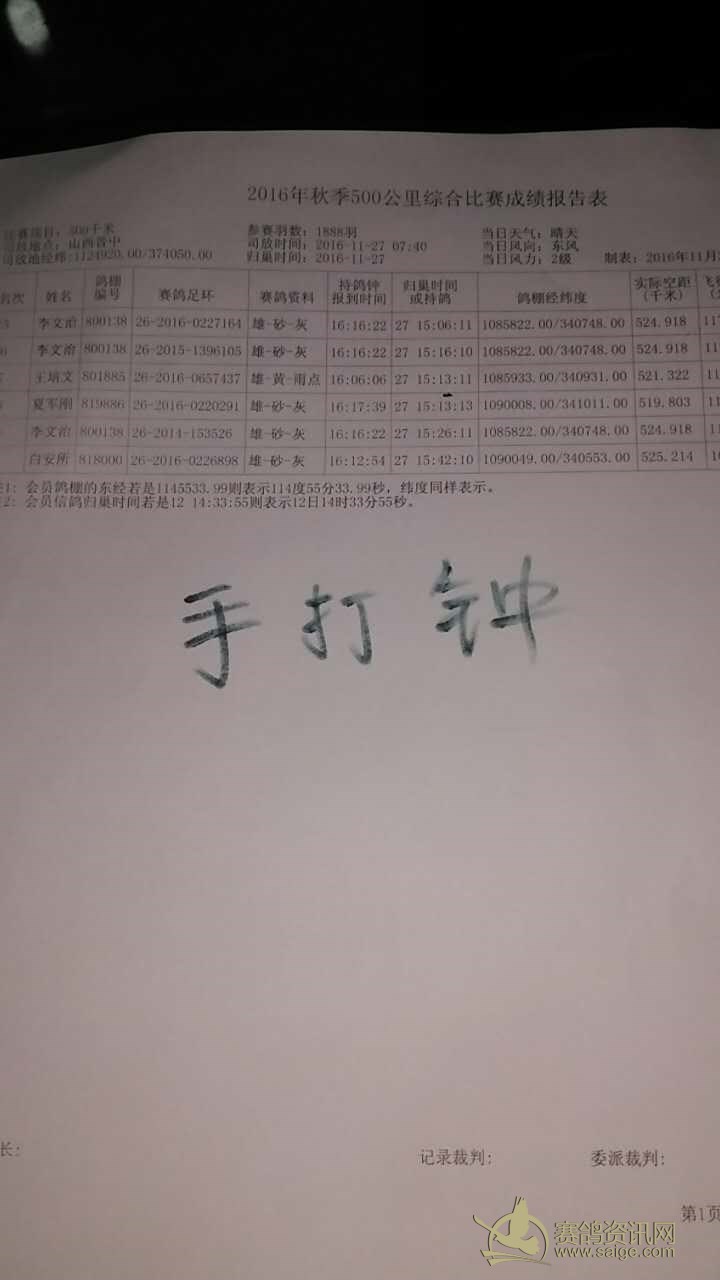 2016年秋季500公里综合比赛成绩报告表
比赛项目：500千米 参赛羽数：1888羽 当日天气：晴天
司放地点：山西晋中 司放时间：2016-11-27 07:40 当日风向：东风
司放地经纬:1124920.00/374050.00 归巢时间：2016-11-27 当日风力：2级 制表：2016年11月
名次 姓名 鸽棚编号 赛鸽足环 赛鸽资料 持鸽钟报到时间 归巢时间或持鸽 鸽棚经纬度 实际空距(千米)
李文治 800138 26-2016-0227164 雄-砂-灰 16:16:22 27 15:06:11 1085822.00/340748.00 524.918
李文治 800138 26-2015-1396105 雄-砂-灰 16:16:22 27 15:16:10 1085822.00/340748.00 524.918
王培文 801885 26-2016-0657437 雄-黄-雨点 16:06:06 27 15:13:11 1085933.00/340931.00 521.322
夏军刚 819886 26-2016-0220291 雄-砂-灰 16:17:39 27 15:13:13 1090008.00/341011.00 519.803
李文治 800138 26-2014-153526 雄-砂-灰 16:16:22 27 15:26:11 1085822.00/340748.00 524.918
白安所 818000 26-2016-0226898 雄-砂-灰 16:12:54 27 15:42:10 1090049.00/340553.00 525.214
1: 会员鸽棚的东经若是1145533.99则表示114度55分33.99秒，纬度同样表示。
2: 会员信鸽归巢时间若是12 14:33:55则表示12日14时33分55秒。
手打钟
长: 记录裁判: 委派裁判:
第1页
赛鸽资讯网
www.saige.com